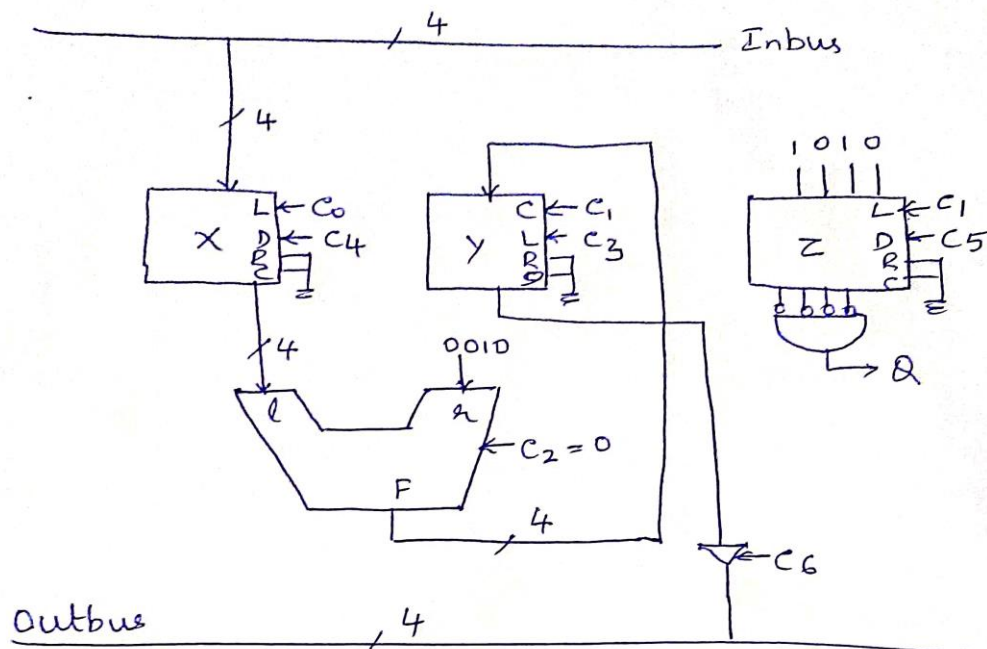 4
Inbus
4
X
L
C0
D
C4
R
C
Y
C
C1
L
C3
R
D
1 0 1 0
Z
L
C1
D
C5
R
C
4
0010
l
r
C2 = 0
Q
F
4
C6
Outbus
4